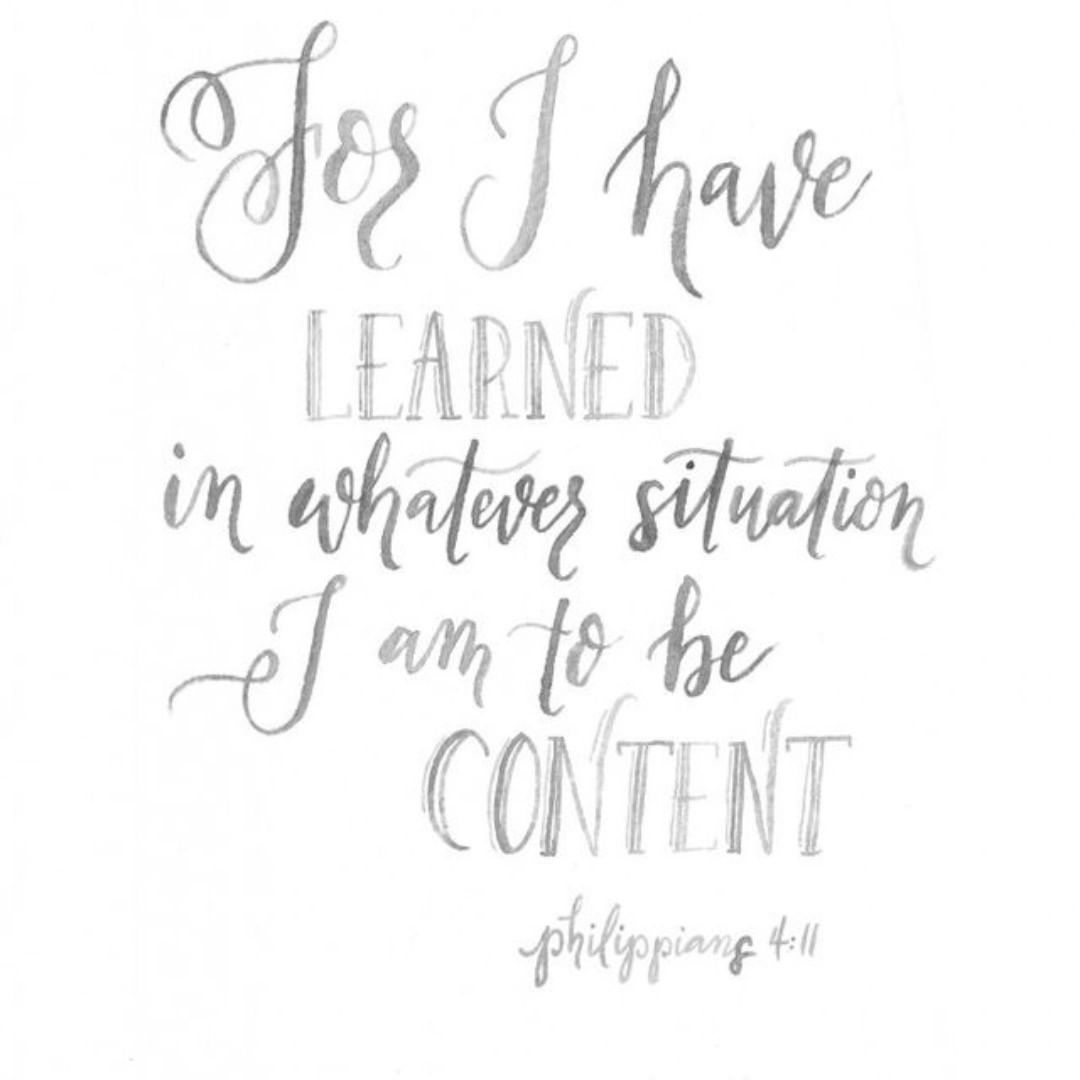 For I have
LEARNED
in whatever situation
I am to be
CONTENT
philippians 4:11